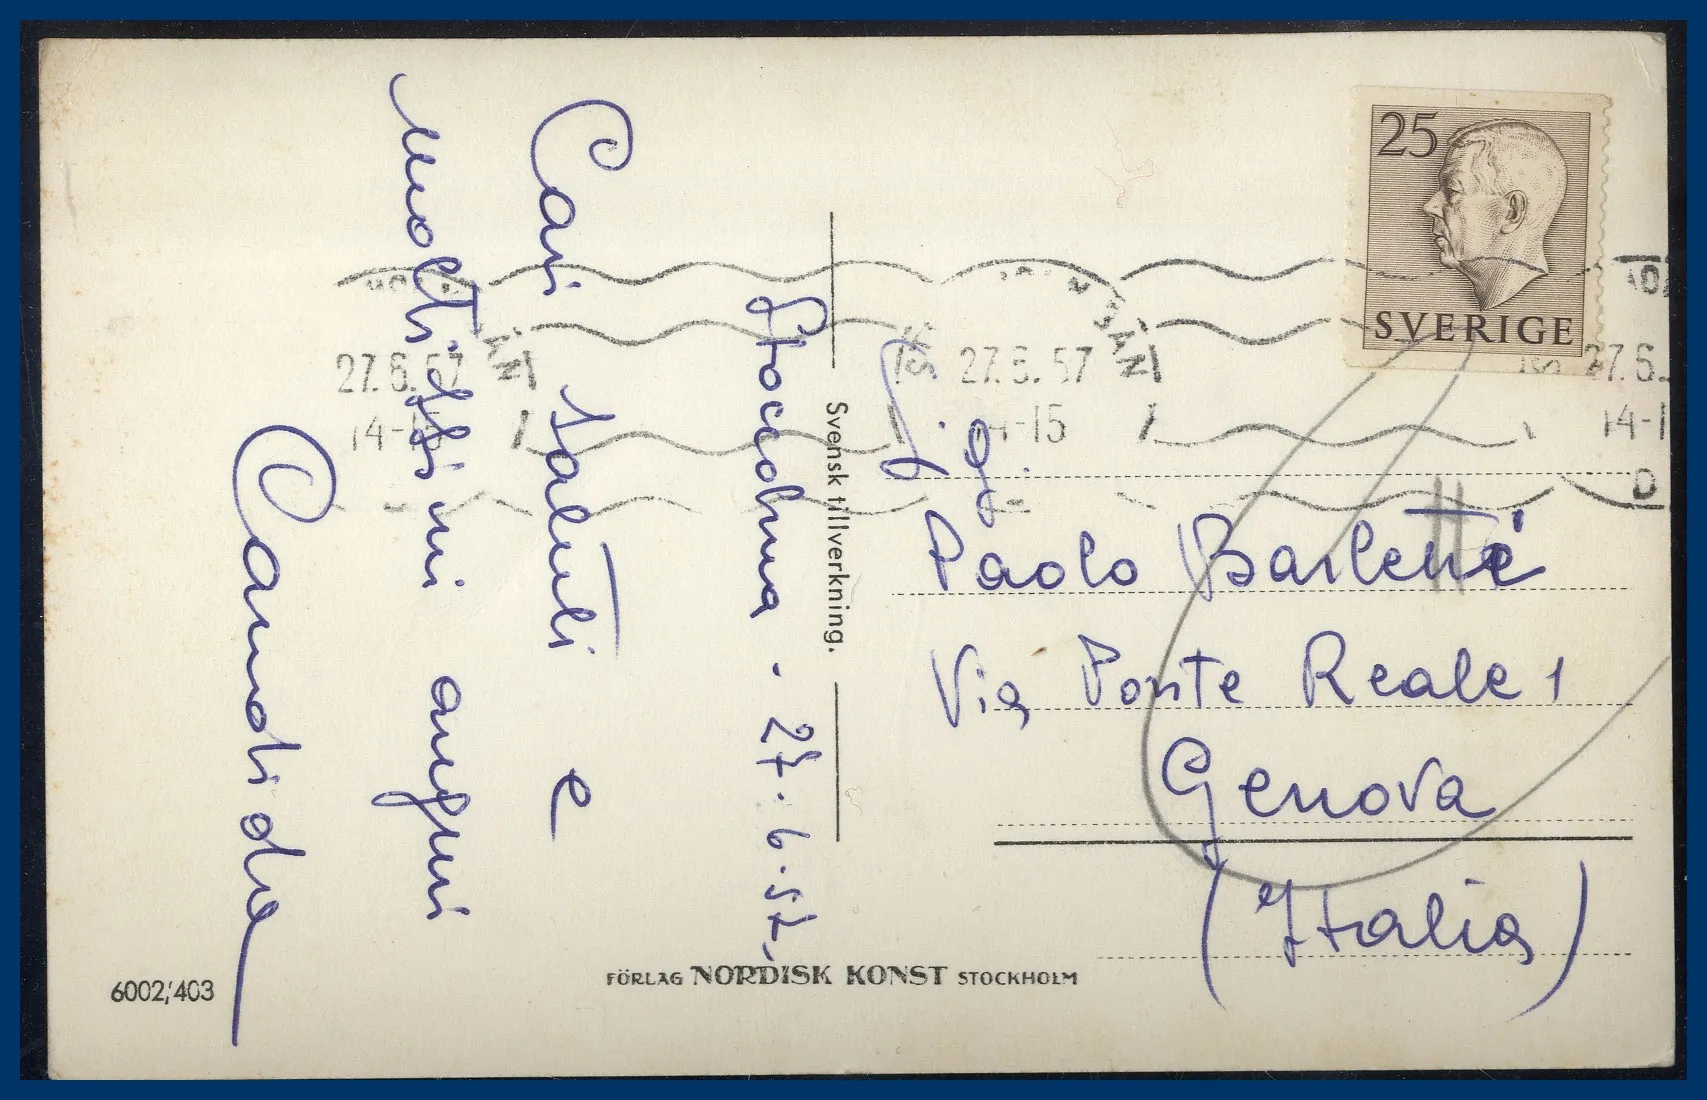 Stoccolma. 27.6.57.
Cari saluti e
moltissimi auguri
Candida
Svensk tillverkning.
25
SVERIGE
27.6.57
14-15
27.6.57
14-15
27.6.
14-1
Sig.
Paolo
Via Ponte Reale 1
Genova
(Italia)
6002/403
FÖRLAG NORDISK KONST STOCKHOLM